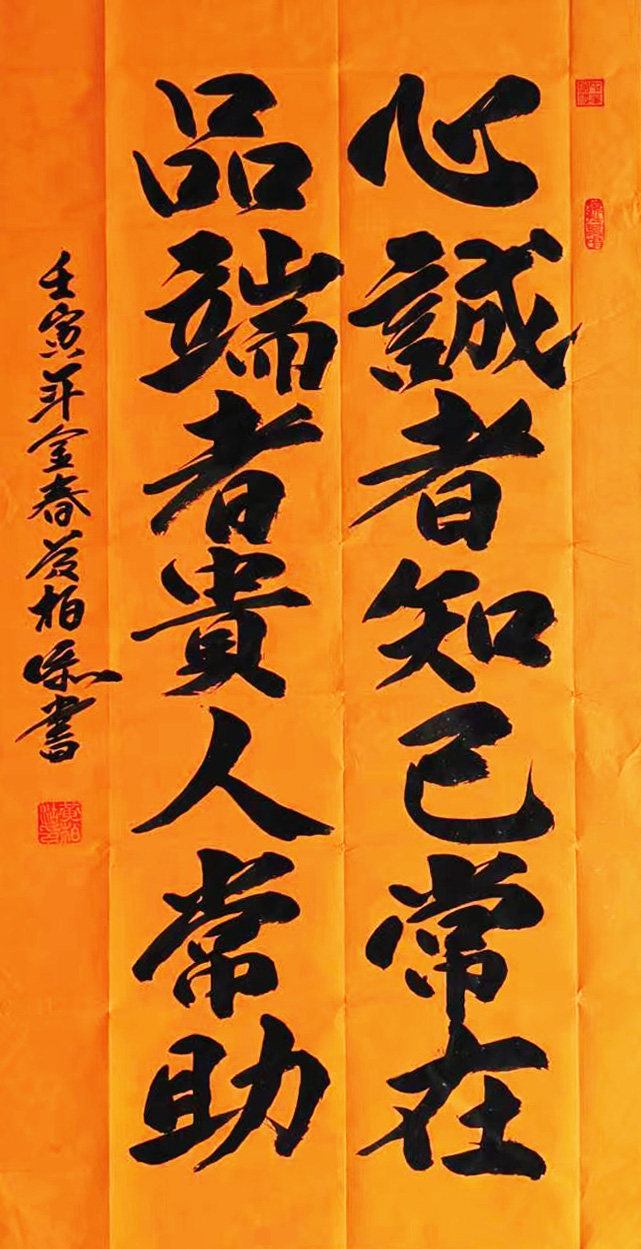 心誠者知己常在
品端者貴人常助
壬寅年金春黃柏添書